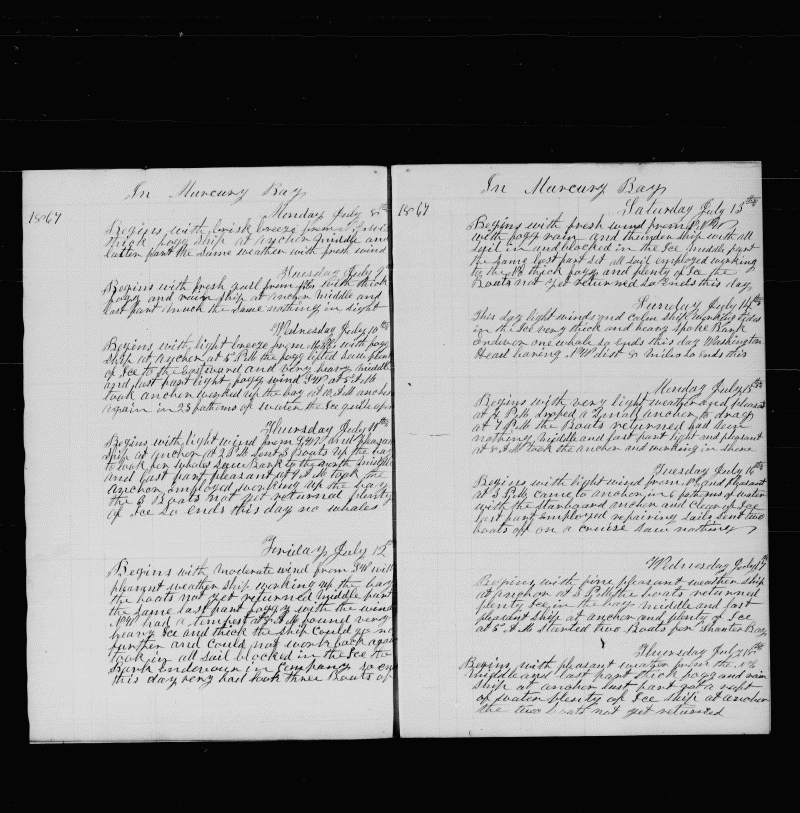 In Mercury Bay
1867
Monday July 8th
Begins with brisk breeze from
thick fogg ship at anchor Middle and
latter part the Same weather with fresh wind
Tuesday July 9th
Begins with fresh gail from with thick
fogg and rain ship at anchor Middle and
last part much the Same nothing in sight
Wednesday July 10th
Begins with light breeze from with fogg
Ship at anchor at 5 P.M the fogg lifted have plenty
of Ice to the Eastward and very heavy Middle
and last part light fogg wind SW at 5 A.M
took anchor worked up the bay at 10 A.M anchor
again in 25 fathoms of water the Ice quite
Thursday July 11th
Begins with light wind from and pleasant
Ship at anchor at 2 P.M Sent 3 Boats up the bay
to look for whales Saw Bark to the north middle
and last part pleasant at 9 A.M took the
anchor employed working up the bay
the 3 Boats not yet returned plenty
of Ice So ends this day no whales
Friday July 12th
Begins with moderate wind from SW with
pleasant weather Ship working up the bay
the boats not yet returned Middle part
the Same last part foggy with the wind
NW had a tempest at A.M found very
heavy Ice and thick the Ship could go no
further and Could not work back again
took in all Sail blocked in the Ice the
Bark Endeavor in Company so ends
this day very bad took three Boats of
In Mercury Bay
1867
Saturday July 13th
Begins with fresh wind from
with fogg rain and thunder Ship with all
sail in and blocked in the Ice middle part
the Same last part Set all sail employed working
to the thick fogg and plenty of Ice the
Boats not yet returned so Ends this day
Sunday July 14th
This day light winds and calm Ship working
in the Ice very thick and heavy Spoke Bark
Endever one whale so ends this day Washington
Head baring NW dist 8 miles So Ends this
Monday July 15th
Begins with very light weather and pleasant
at P.M droped a Small anchor to drag
at 7 P.M the Boats returned had Seen
nothing Middle and last part light and pleasant
at A.M took the anchor and working in shore
Tuesday July 16th
Begins with light wind from and pleasant
at 3 P.M came to anchor in 6 fathoms of water
with the Starboard anchor and Clear of Ice
last part Employed repairing Sails Sent two
boats off on a cruise Saw nothing
Wednesday July 17th
Begins with fine pleasant weather Ship
at anchor at 3 P.M the boats returned
plenty Ice in the bay middle and last
pleasant ship at anchor and plenty of Ice
at 5 A.M Started two Boats for Shanter Bay
Thursday July 18th
Begins with pleasant weather from the
Middle and last part thick fogg and rain
Ship at anchor last part got a raft
of water plenty of Ice Ship at anchor
the two boats not yet returned